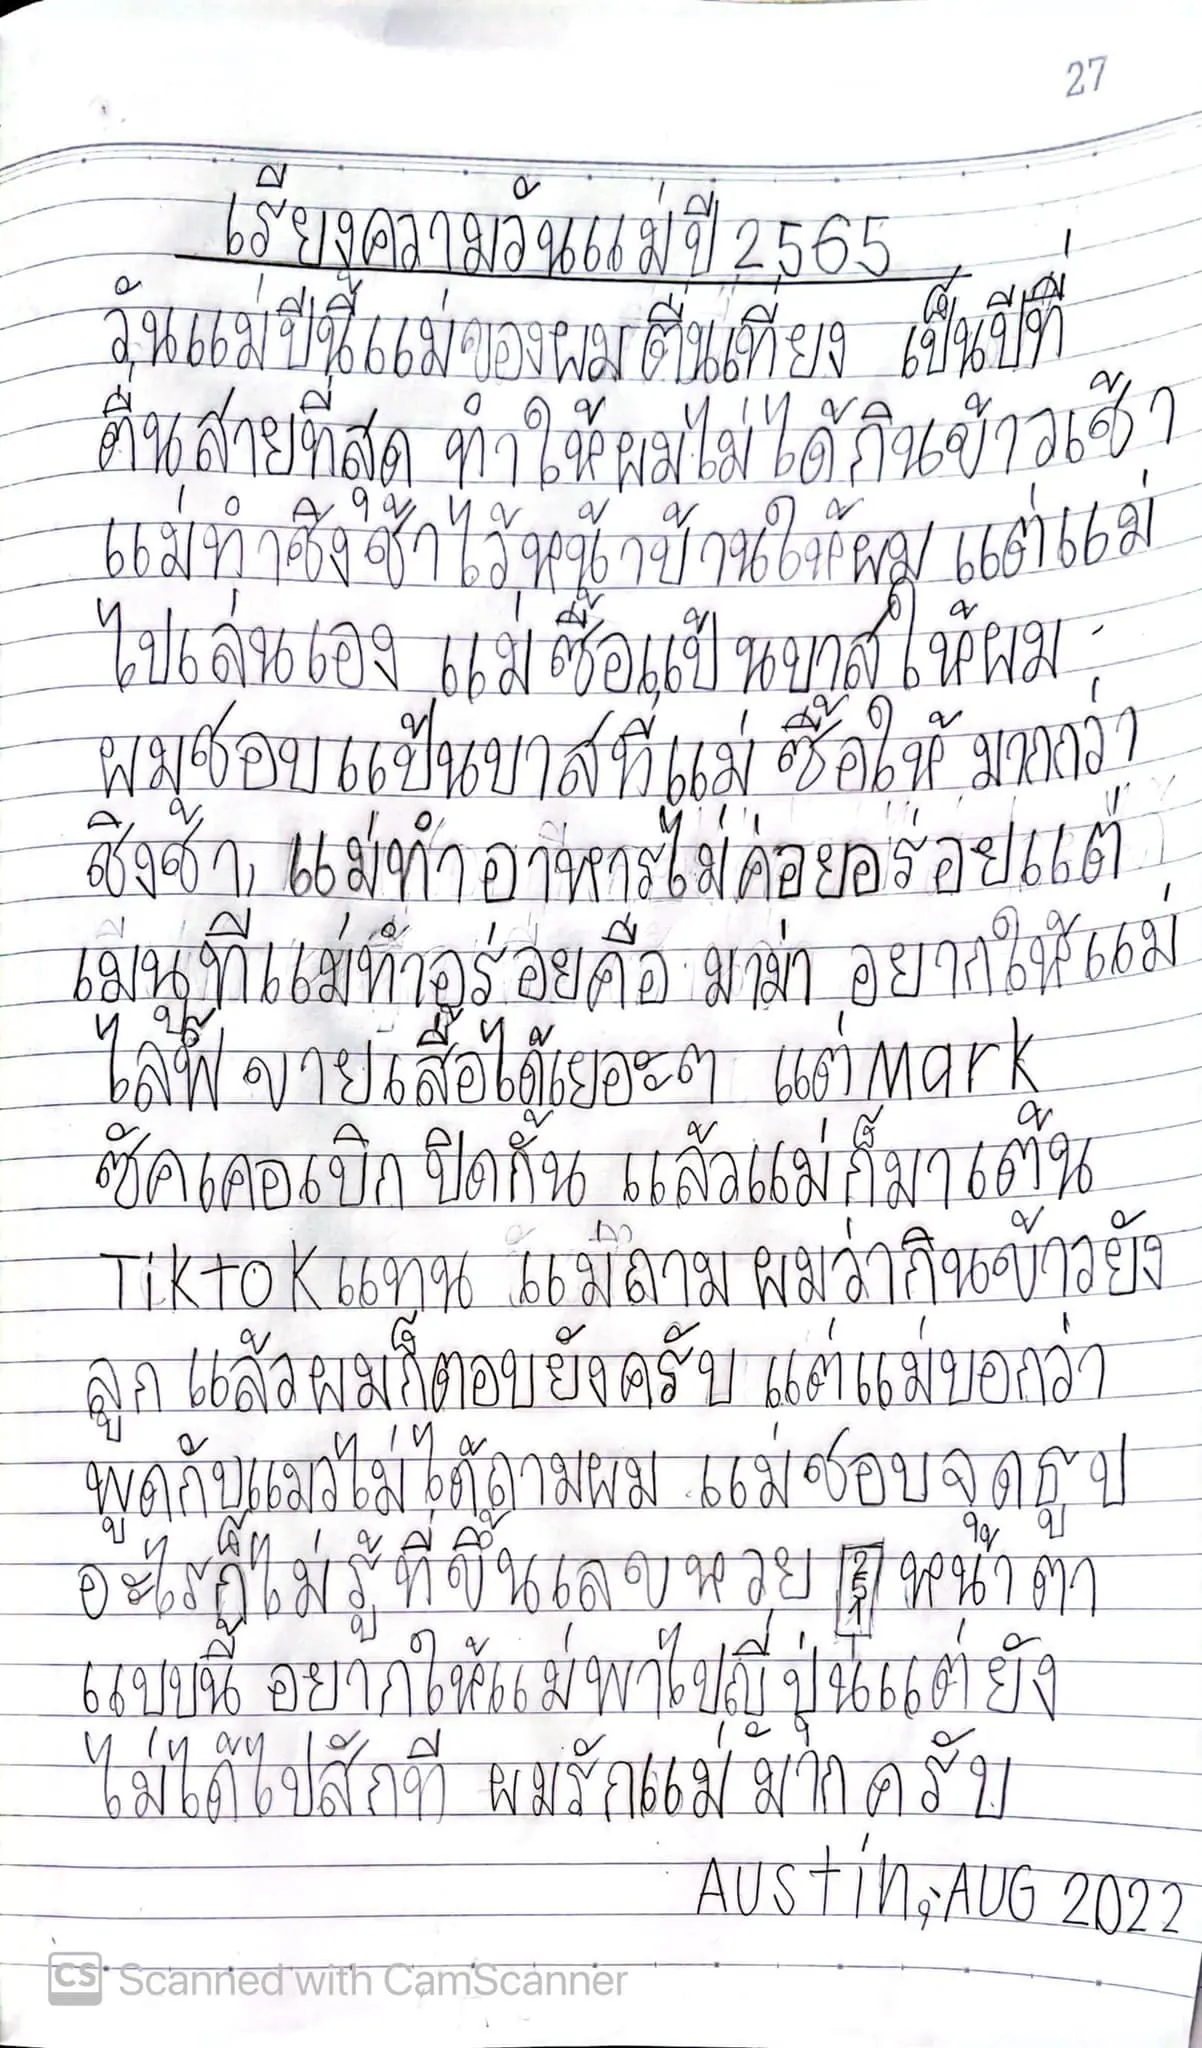 27
เรียงความวันแม่ปี 2565
วันแม่ปีนี้แม่ของผมตื่นเที่ยง เป็นปีที่
ตื่นสายที่สุด ทำให้ผมไม่ได้กินข้าวเช้า
แม่ทำชิงช้าไว้หน้าบ้านให้ผม แต่แม่
ไปเล่นเอง แม่ซื้อแป้นบาสให้ผม
ผมชอบแป้นบาสที่แม่ซื้อให้ มากกว่า
ชิงช้า, แม่ทำอาหารไม่ค่อยอร่อยแต่
เมนูที่แม่ทำอร่อยคือ มาม่า อยากให้แม่
ไลฟ์ขายเสื้อได้เยอะๆ แต่ Mark
ซัคเคอเบิก ปิดกั้น แล้วแม่ก็มาเต้น
Tiktok แทน แม่ถามผมว่ากินข้าวยัง
ลูก แล้วผมก็ตอบยังครับ แต่แม่บอกว่า
พูดกับแมวไม่ได้ถามผม แม่ชอบจุดธูป
อะไรก็ไม่รู้ที่ขึ้นเลขหวย หน้าตา
แบบนี้ อยากให้แม่พาไปญี่ปุ่นแต่ยัง
ไม่ได้ไปสักที ผมรักแม่มากครับ
Austin, AUG 2022
CS Scanned with CamScanner